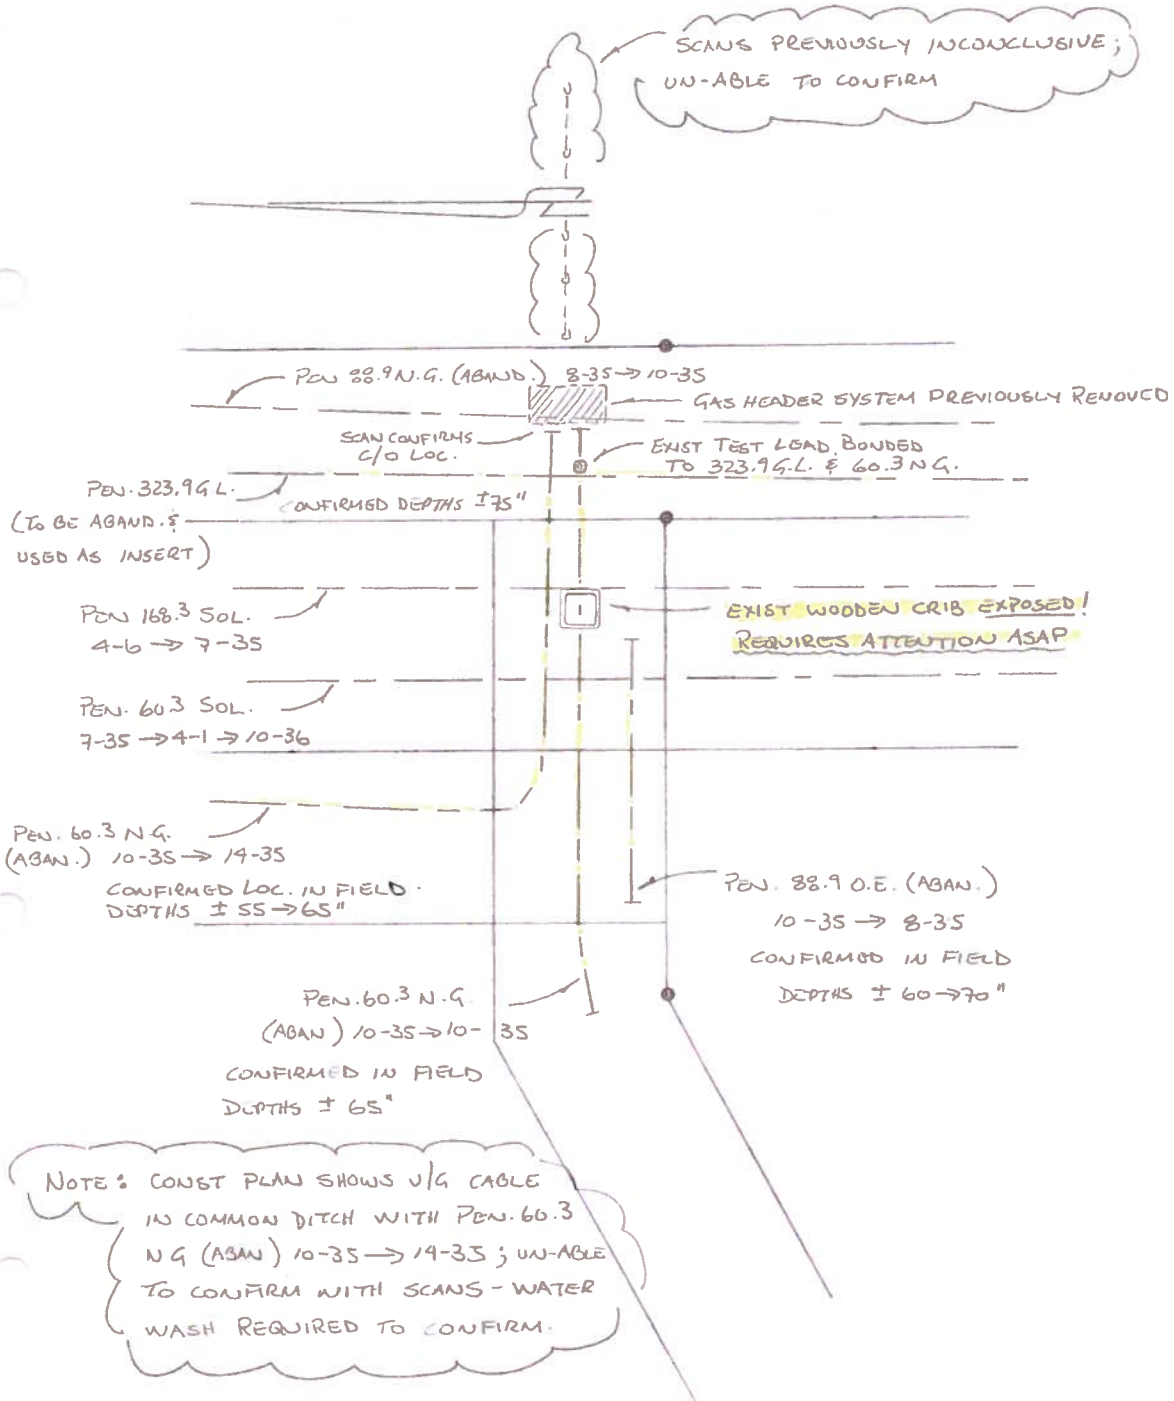 SCANS PREVIOUSLY INCONCLUSIVE;
UN-ABLE TO CONFIRM
PEN 88.9 N.G. (ABAND.) 8-35→10-35
GAS HEADER SYSTEM PREVIOUSLY REMOVED
SCAN CONFIRMS
C/O LOC.
EXIST TEST LEAD BONDED
TO 323.9 G.L. & 60.3 N.G.
PEN. 323.9 G.L.
(TO BE ABAND. &
USED AS INSERT)
CONFIRMED DEPTHS ±75"
PEN 168.3 SOL.
4-6 → 7-35
EXIST WOODEN CRIB EXPOSED!
REQUIRES ATTENTION ASAP
PEN. 60.3 SOL.
7-35 → 4-1 → 10-36
PEN. 60.3 N.G.
(ABAN.) 10-35 → 14-35
CONFIRMED LOC. IN FIELD.
DEPTHS ± 55→65"
PEN. 88.9 O.E. (ABAN.)
10-35 → 8-35
CONFIRMED IN FIELD
DEPTHS ± 60→70"
PEN. 60.3 N.G.
(ABAN) 10-35→10-35
CONFIRMED IN FIELD
DEPTHS ± 65"
NOTE: CONST PLAN SHOWS U/G CABLE
IN COMMON DITCH WITH PEN. 60.3
N G (ABAN) 10-35→14-35; UN-ABLE
TO CONFIRM WITH SCANS - WATER
WASH REQUIRED TO CONFIRM.